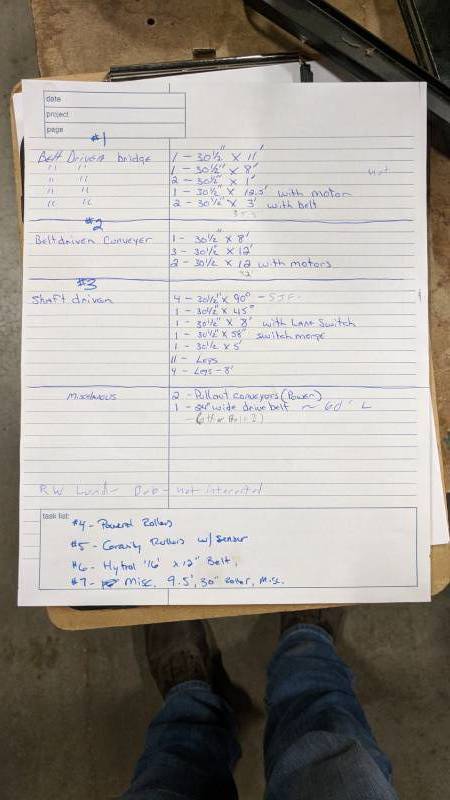 date
project
page
#1
Belt Driven bridge 1 - 30 1/2" x 11'
" " 1 - 30 1/2" x 8'
" " 2 - 30 1/2" x 1'
" " 1 - 30 1/2" x 12.5' with motor
" " 2 - 30 1/2" x 3' with belt
not
35.5'
#2
Belt driven Conveyer 1 - 30 1/2" x 8'
3 - 30 1/2" x 12'
2 - 30 1/2 x 12 with motors
#3
Shaft driven 4 - 30 1/2" x 90° -
1 - 30 1/2" x 45°
1 - 30 1/2" x 8' with Lane Switch
1 - 30 1/2" x 58" switch merge
1 - 30 1/2 x 5'
11 - Legs
4 - Legs - 8'
Miscelanous 2 - Pullout conveyors (Power)
1 - 24" wide drive belt ~ 60' L
RW - not interested
task list:
#4 - Powered Rollers
#5 - Gravity Rollers w/ sensor
#6 - Hytrol '16' x 12" Belt,
#7 - Misc. 9.5', 30" roller, Misc.